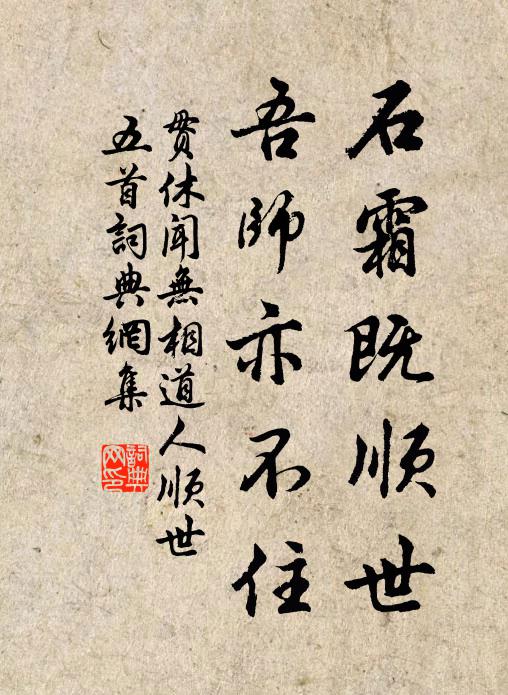 石霜既顺世
吾師亦不住
贯休闻無相道人顺世
五首詞典網集
詞典网印